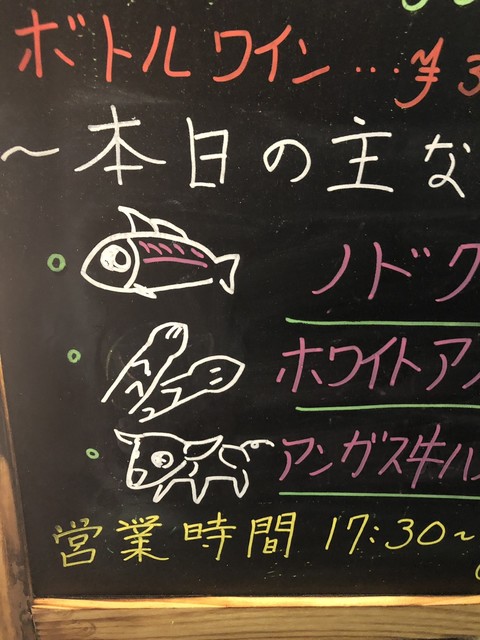 ボトルワイン…¥3
～本日の主な
ノドク
ホワイトア
アンガス牛ル
営業時間 17:30～